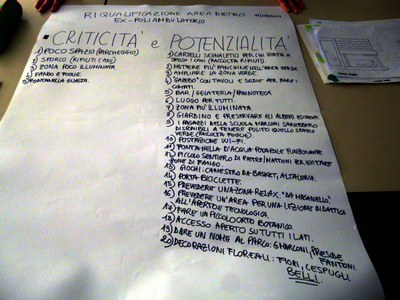 RIQUALIFICAZIONE AREA DIETRO
EX-POLIAMBULATORIO
• CRITICITA' e POTENZIALITA'
1) POCO SPAZIO (PARCHEGGIO)
2) SPORCO (RIFIUTI CANI)
3) ZONA POCO ILLUMINATA
4) FANGO E POZZE
5) FONTANELLA
1) CARTELLI SEGNALETICI PER CHI PORTA A
SPASSO I CANI (RACCOLTA RIFIUTI)
2) METTERE PIU' PANCHINE NELL'AREA VERDE
3) AMPLIARE LA ZONA VERDE
4) "GAZEBO" CON TAVOLI E SEDIE PER FARE I
COMPITI.
5) BAR / GELATERIA / PANINOTECA
6) LUOGO PER TUTTI.
7) ZONA PIU' ILLUMINATA
8) GIARDINO E PRESERVARE GLI ALBERI ESISTENTI
9) I RAGAZZI DELLA SCUOLA MARCONI SAREBBERO
DISPONIBILI A TENERE PULITO QUELLO SPAZIO
VERDE (RACCOLTA FOGLIE)
10) POSTAZIONE WI-FI.
11) FONTANELLA D'ACQUA POTABILE FUNZIONANTE
12) PICCOLO SENTIERO DI PIETRE/MATTONI PER EVITARE
ZONE DI FANGO.
13) GIOCHI: CANESTRO DA BASKET, ALTALENA.
14) PORTA BICICLETTE.
15) PREVEDERE UNA ZONA RELAX.
16) PREVEDERE UN'AREA PER UNA LEZIONE DIDATTICA
ALL'APERTO E TECNOLOGICA.
17) FARE UN PICCOLO ORTO BOTANICO.
18) ACCESSO APERTO SU TUTTI I LATI.
19) DARE UN NOME AL PARCO: G. MARCONI, PRESIDE
FANTONI.
20) DECORAZIONI FLOREALI: FIORI, CESPUGLI
BELLI